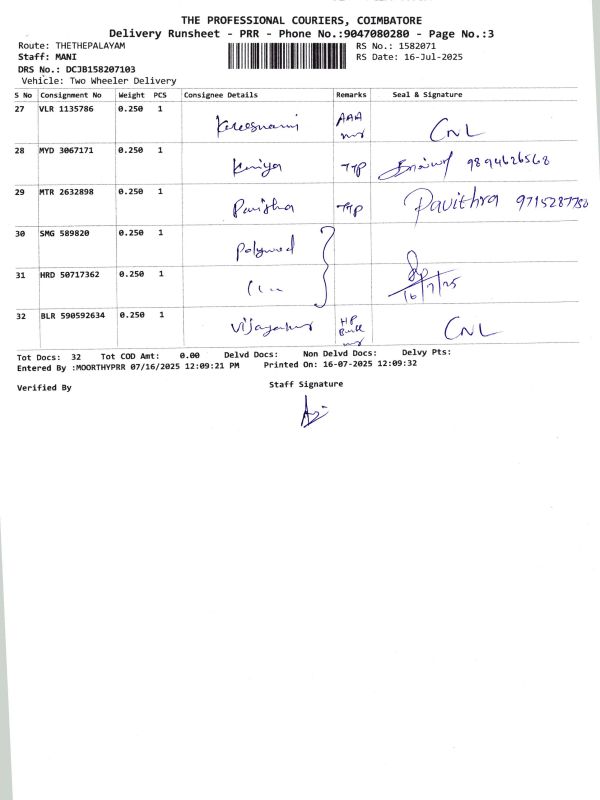 THE PROFESSIONAL COURIERS, COIMBATORE
Delivery Runsheet - PRR - Phone No.:9047080280 - Page No.:3
Route: THETHEPALAYAM RS No.: 1582071
Staff: MANI RS Date: 16-Jul-2025
DRS No.: DCJB158207103
Vehicle: Two Wheeler Delivery
S No Consignment No Weight PCS Consignee Details Remarks Seal & Signature
27 VLR 1135786 0.250 1 AAA CNL
28 MYD 3067171 0.250 1 TTP 9894626568
29 MTR 2632898 0.250 1 Pavithra TTP Pavithra
30 SMG 589820 0.250 1 Polymed
31 HRD 50717362 0.250 1 16/7/25
32 BLR 590592634 0.250 1 HP CNL
Tot Docs: 32 Tot COD Amt: 0.00 Delvd Docs: Non Delvd Docs: Delvy Pts:
Entered By :MOORTHYPRR 07/16/2025 12:09:21 PM Printed On: 16-07-2025 12:09:32
Verified By Staff Signature